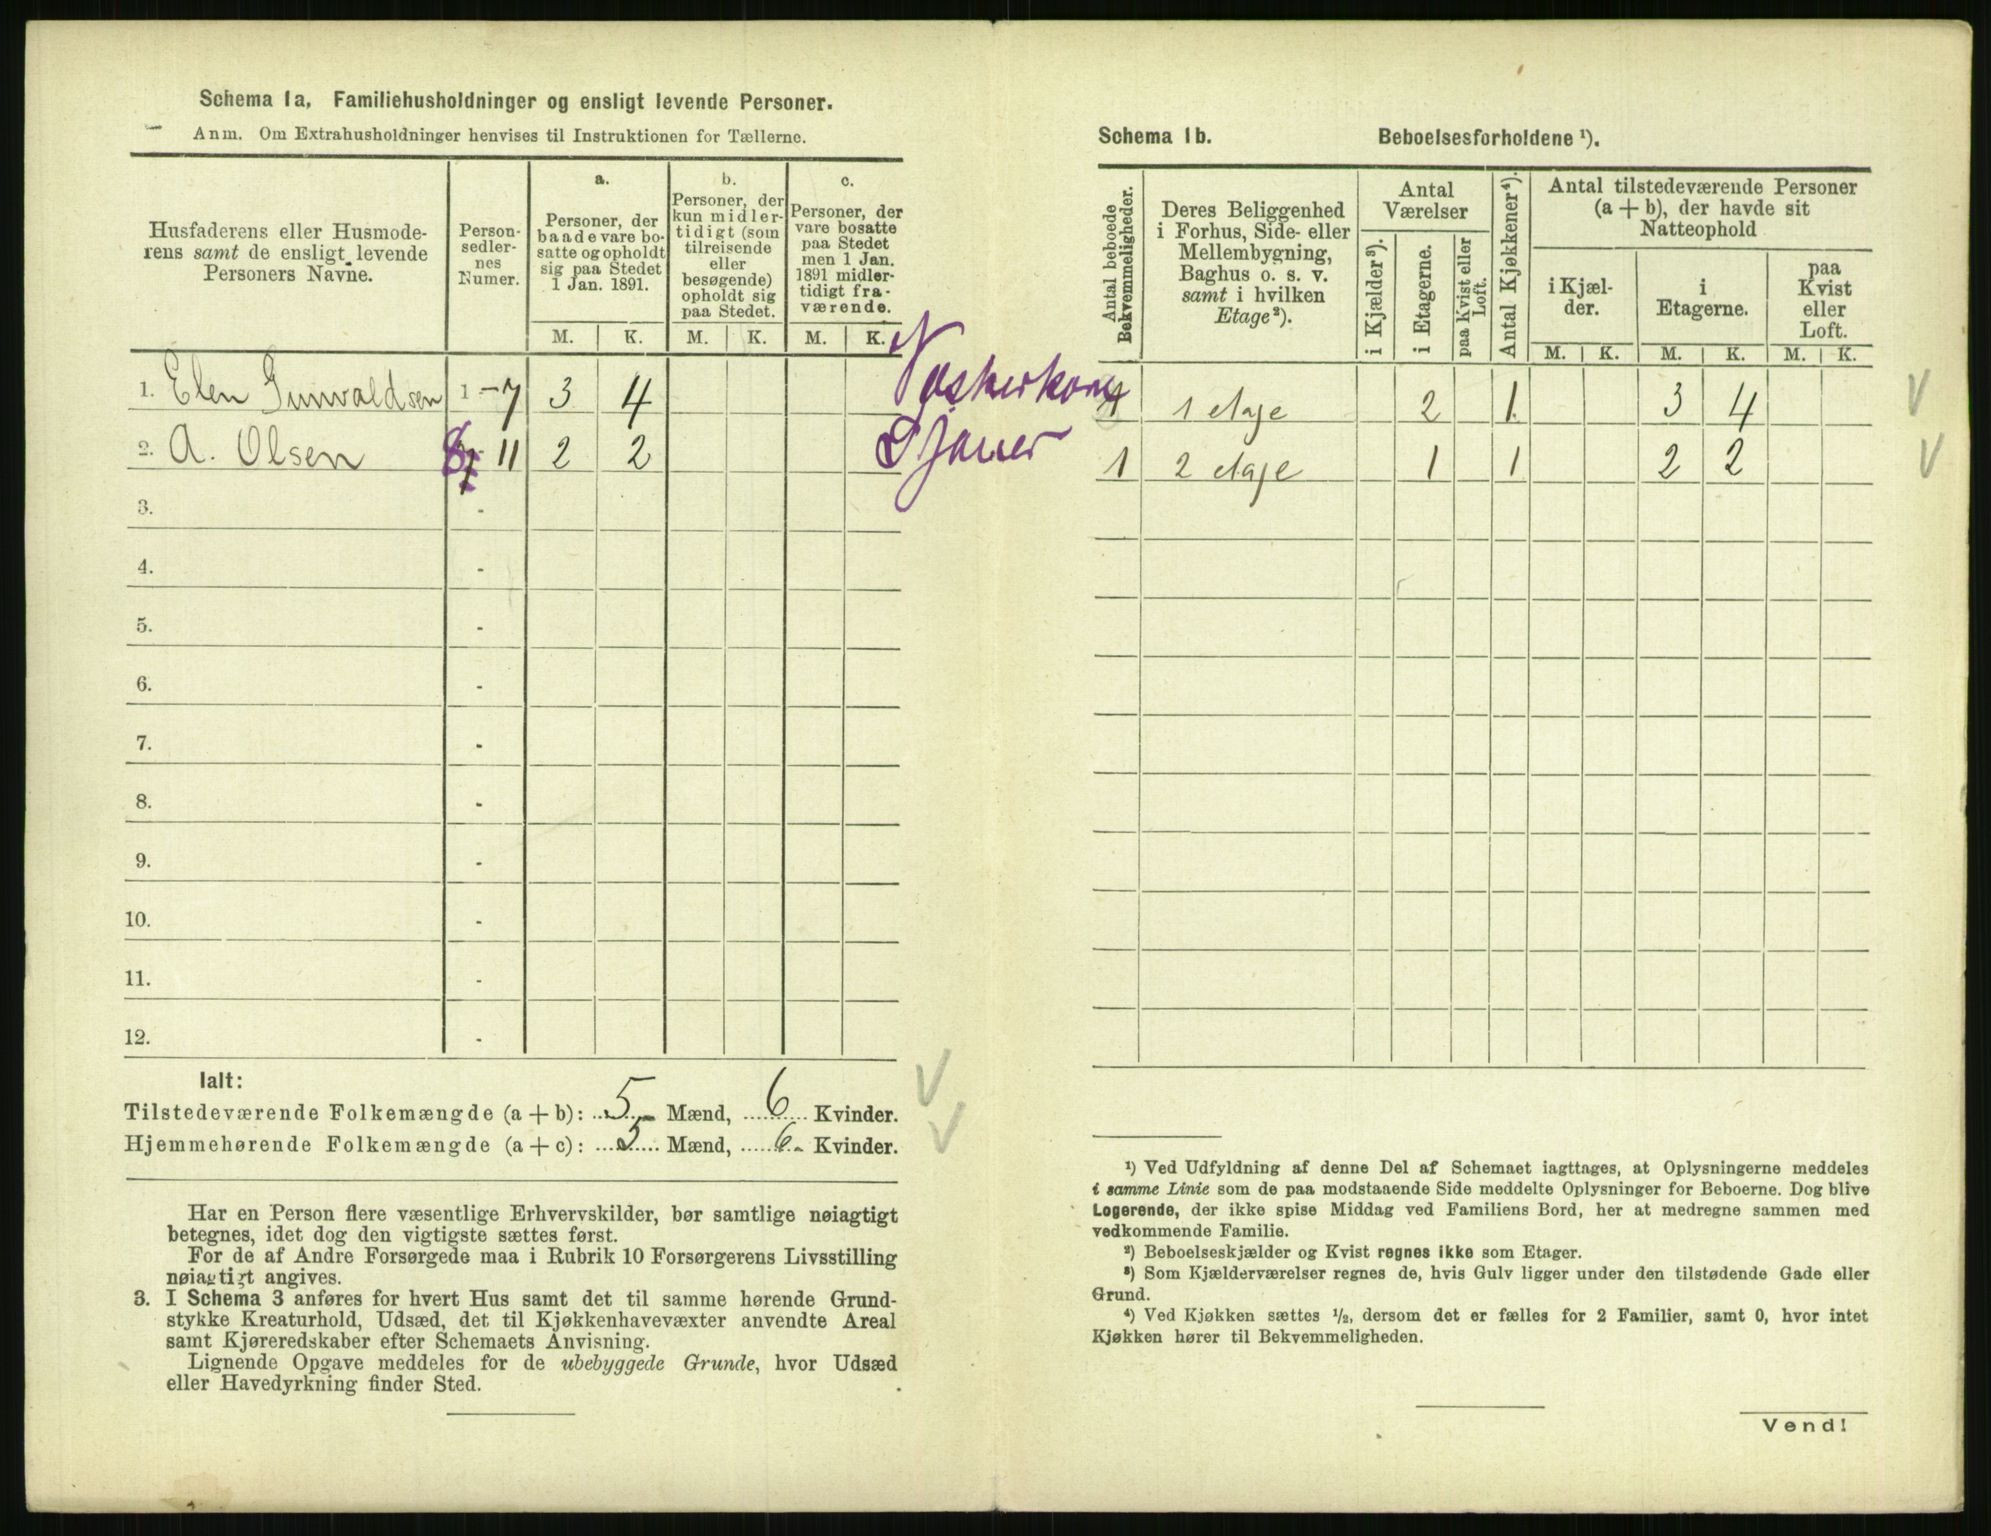 Schema 1a. Familiehusholdninger og ensligt levende Personer.
Anm. Om Extrahusholdninger henvises til Instruktionen for Tællerne.
Husfaderens eller Husmode-
rens samt de ensligt levende
Personers Navne.
Person-
sedler-
nes
Numer.
a.
Personer, der
baade vare bo-
satte og opholdt
sig paa Stedet
1 Jan. 1891.
b.
Personer, der
kun midler-
tidigt (som
tilreisende
eller
besøgende)
opholdt sig
paa Stedet.
c.
Personer, der
vare bosatte
paa Stedet
men 1 Jan.
1891 midler-
tidigt fra-
værende.
M. K. M. K. M. K.
1. Elen Gunvaldsen 1-7 3 4 Vaskerkone
2. A. Olsen 8- 11 2 2 Sjauer
3. -
4. -
5. -
6. -
7. -
8. -
9. -
10. -
11. -
12. -
Ialt:
Tilstedeværende Folkemængde (a + b): 5 Mænd, 6 Kvinder.
Hjemmehørende Folkemængde (a + c): 5 Mænd, 6 Kvinder.
Har en Person flere væsentlige Erhvervskilder, bør samtlige nøiagtigt
betegnes, idet dog den vigtigste sættes først.
For de af Andre Forsørgede maa i Rubrik 10 Forsørgerens Livsstilling
nøiagtigt angives.
3. I Schema 3 anføres for hvert Hus samt det til samme hørende Grund-
stykke Kreaturhold, Udsæd, det til Kjøkkenhavevæxter anvendte Areal
samt Kjøreredskaber efter Schemaets Anvisning.
Lignende Opgave meddeles for de ubebyggede Grunde, hvor Udsæd
eller Havedyrkning finder Sted.
Schema 1b. Beboelsesforholdene ¹).
Antal beboede
Bekvemmeligheder.
Deres Beliggenhed
i Forhus, Side- eller
Mellembygning,
Baghus o. s. v.
samt i hvilken
Etage²).
Antal
Værelser
i Kjælder³).
i Etagerne.
paa Kvist eller
Loft.
Antal Kjøkkener⁴).
Antal tilstedeværende Personer
(a + b), der havde sit
Natteophold
i Kjæl-
der.
i
Etagerne.
paa
Kvist
eller
Loft.
M. K. M. K. M. K.
1 1 etage 2 1 3 4
1 2 etage 1 1 2 2
¹) Ved Udfyldning af denne Del af Schemaet iagttages, at Oplysningerne meddeles
i samme Linie som de paa modstaaende Side meddelte Oplysninger for Beboerne. Dog blive
Logerende, der ikke spise Middag ved Familiens Bord, her at medregne sammen med
vedkommende Familie.
²) Beboelseskjælder og Kvist regnes ikke som Etager.
³) Som Kjælderværelser regnes de, hvis Gulv ligger under den tilstødende Gade eller
Grund.
⁴) Ved Kjøkken sættes ½, dersom det er fælles for 2 Familier, samt 0, hvor intet
Kjøkken hører til Bekvemmeligheden.
Vend!